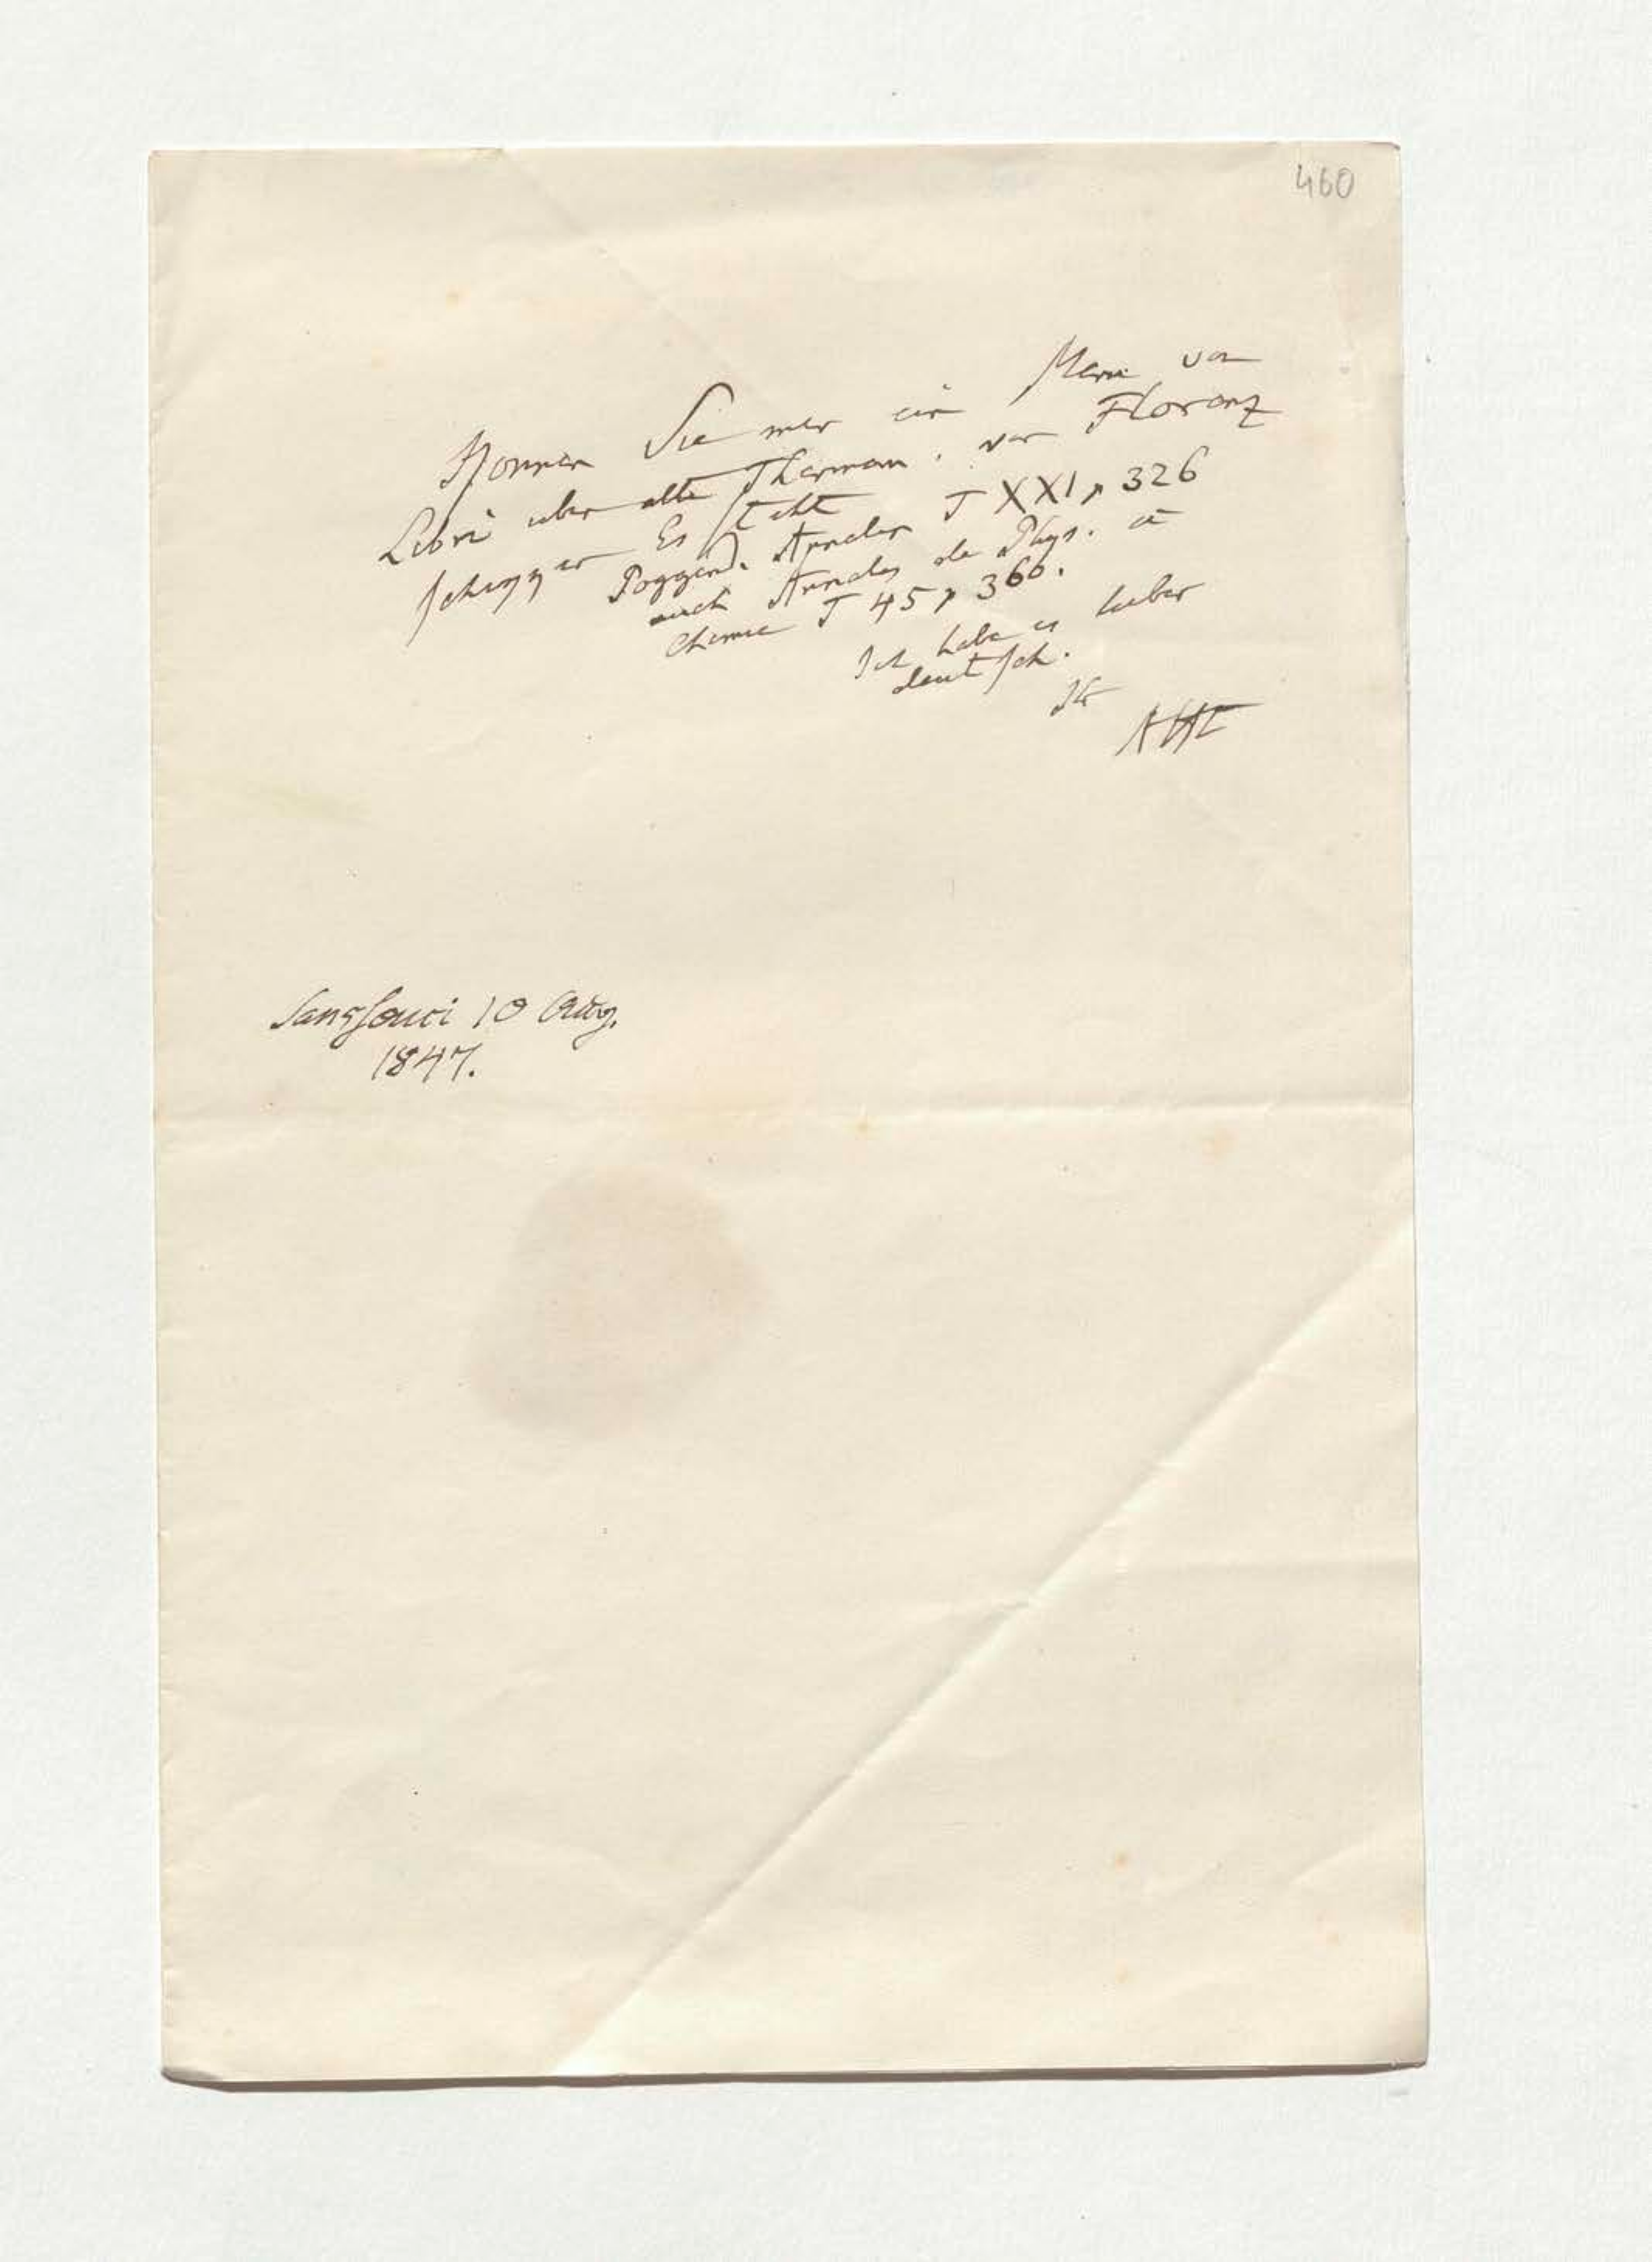 460
Konnen Sie mir ein Mem von
Libri uber alte Thermom. von Florenz
Es steht
Poggend. Annalen T XXI p 326
auch Annales de Phys. et
Chemie T 45 p 360.
Ich habe es lieber
deutsch.
Ihr
AHt
Sanssouci 10 Aug.
1847.